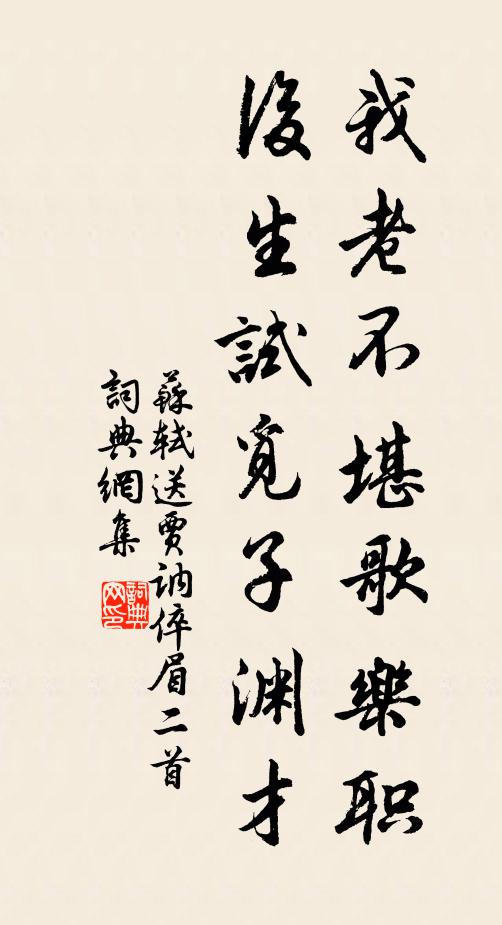 我老不堪歌樂职
後生試覓子渊才
蘇轼送賈讷倅眉二首
詞典網集
詞典网印